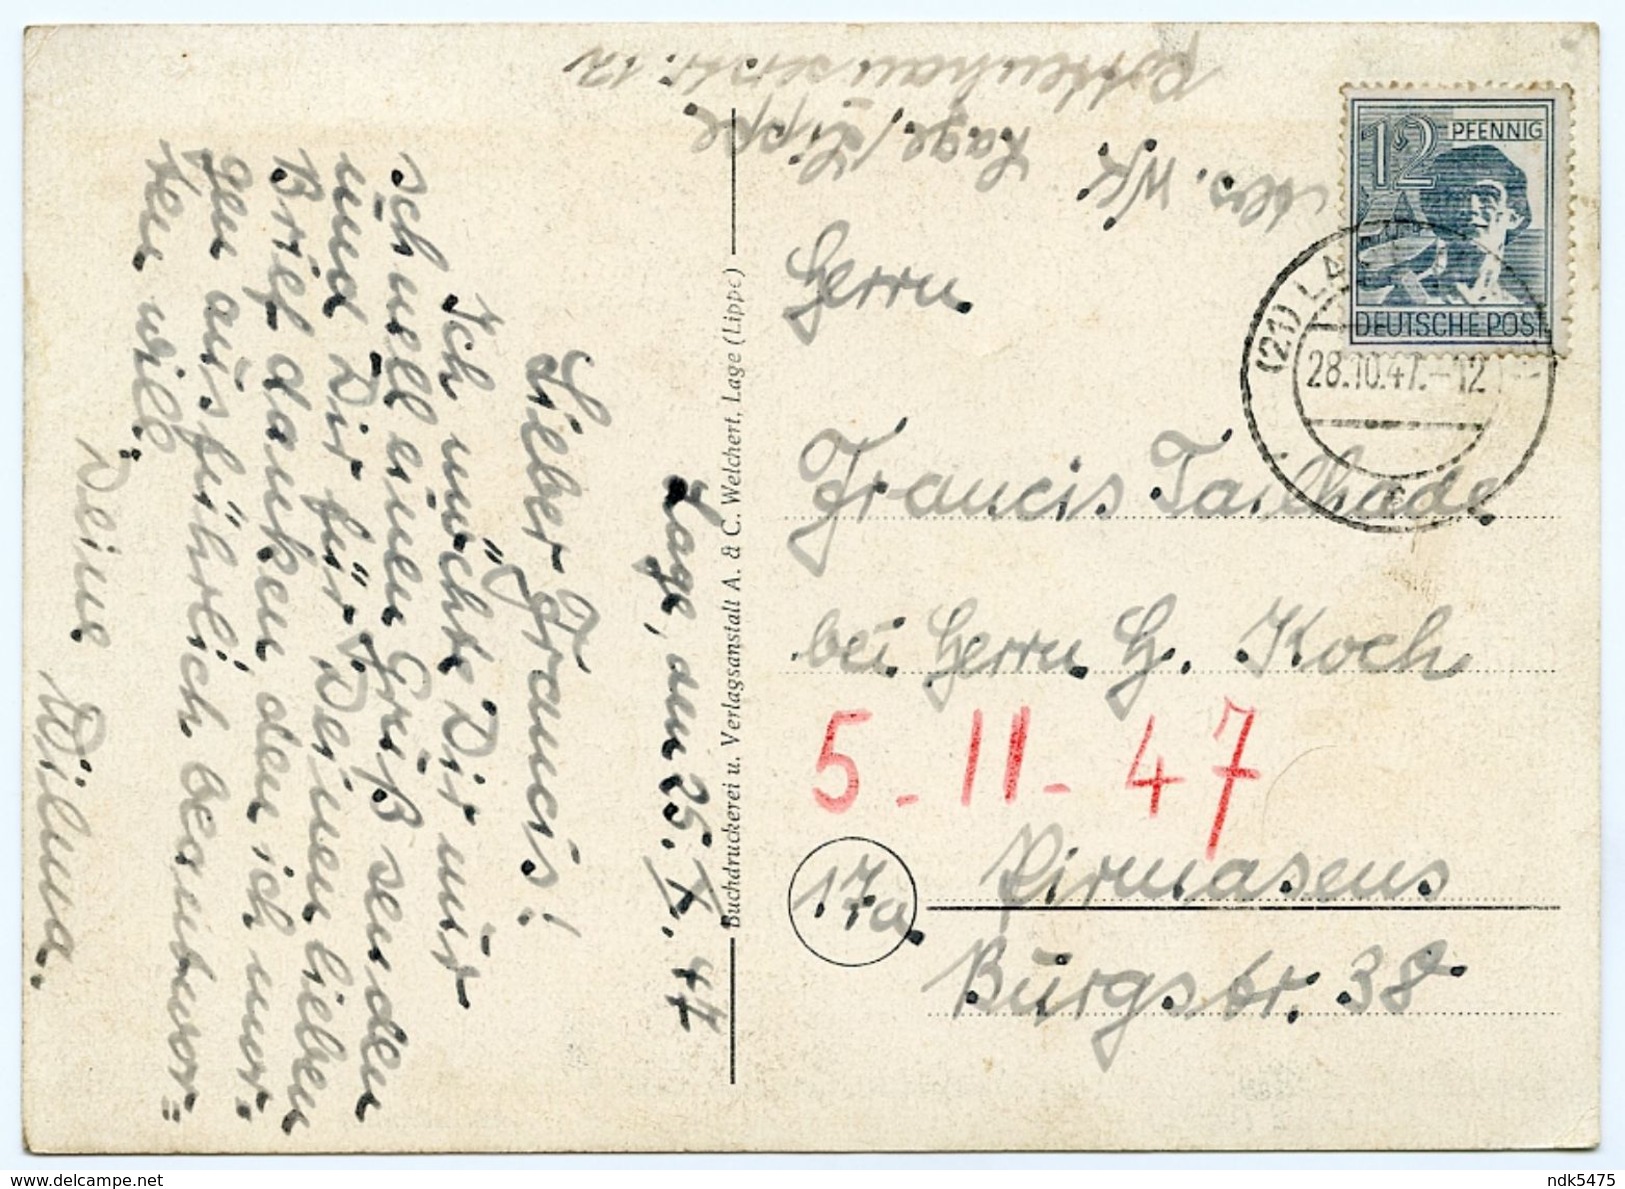 Lage, den 25.X.47
Lieber Francis!
Ich möchte Dir nur
schnell einen Gruß senden
und Dir für Deinen lieben
Brief danken, den ich mor=
gen ausführlich beantwor=
ten will.
Deine Wilma.
Buchdruckerei u. Verlagsanstalt A. & C. Welchert, Lage (Lippe)
Abs. W.K.
Lage/Lippe
str. 12
12 PFENNIG
DEUTSCHE POST
(21) LAGE
28.10.47.-12
c
Herrn
Francis Tailhade
bei Herrn G. Koch
5-11-47
17a Pirmasens
Burgstr. 38
www.delcampe.net
ndk5475